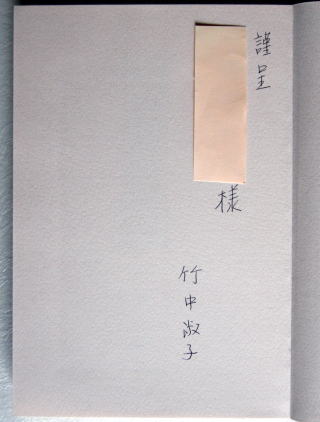 謹呈
様
竹中淑子